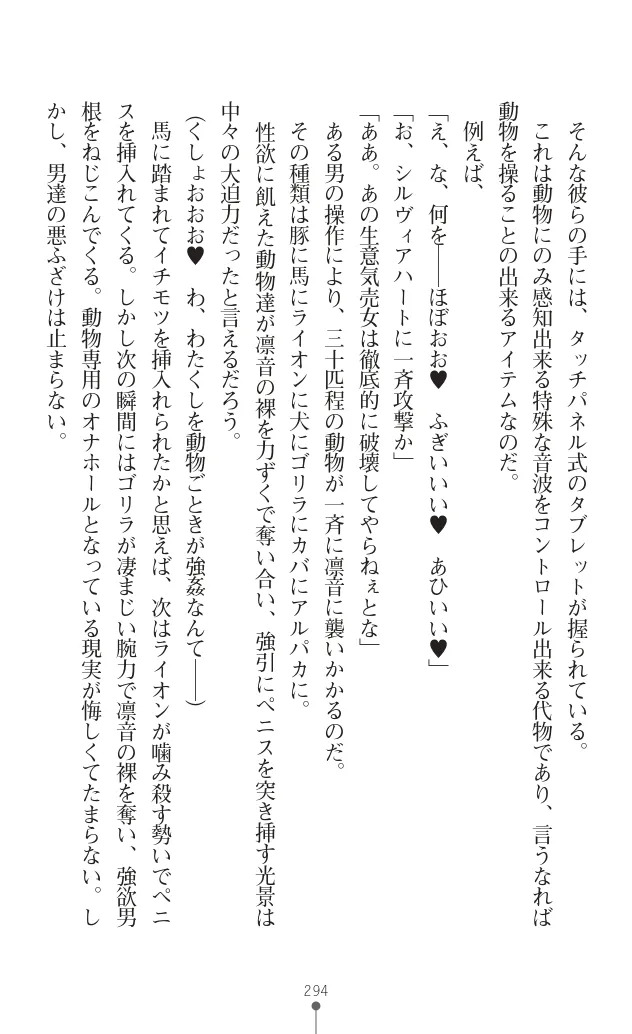 そんな彼らの手には、タッチパネル式のタブレットが握られている。
これは動物にのみ感知出来る特殊な音波をコントロール出来る代物であり、言うなれば
動物を操ることの出来るアイテムなのだ。
例えば、
「え、な、何を――ほぼおお♥　ふぎいいい♥　あひいい♥」
「お、シルヴィアハートに一斉攻撃か」
「ああ。あの生意気売女は徹底的に破壊してやらねぇとな」
ある男の操作により、三十匹程の動物が一斉に凛音に襲いかかるのだ。
その種類は豚に馬にライオンに犬にゴリラにカバにアルパカに。
性欲に飢えた動物達が凛音の裸を力ずくで奪い合い、強引にペニスを突き挿す光景は
中々の大迫力だったと言えるだろう。
(くしょおおお♥　わ、わたくしを動物ごときが強姦なんて――)
馬に踏まれてイチモツを挿入れられたかと思えば、次はライオンが噛み殺す勢いでペニ
スを挿入れてくる。しかし次の瞬間にはゴリラが凄まじい腕力で凛音の裸を奪い、強欲男
根をねじこんでくる。動物専用のオナホールとなっている現実が悔しくてたまらない。し
かし、男達の悪ふざけは止まらない。
294